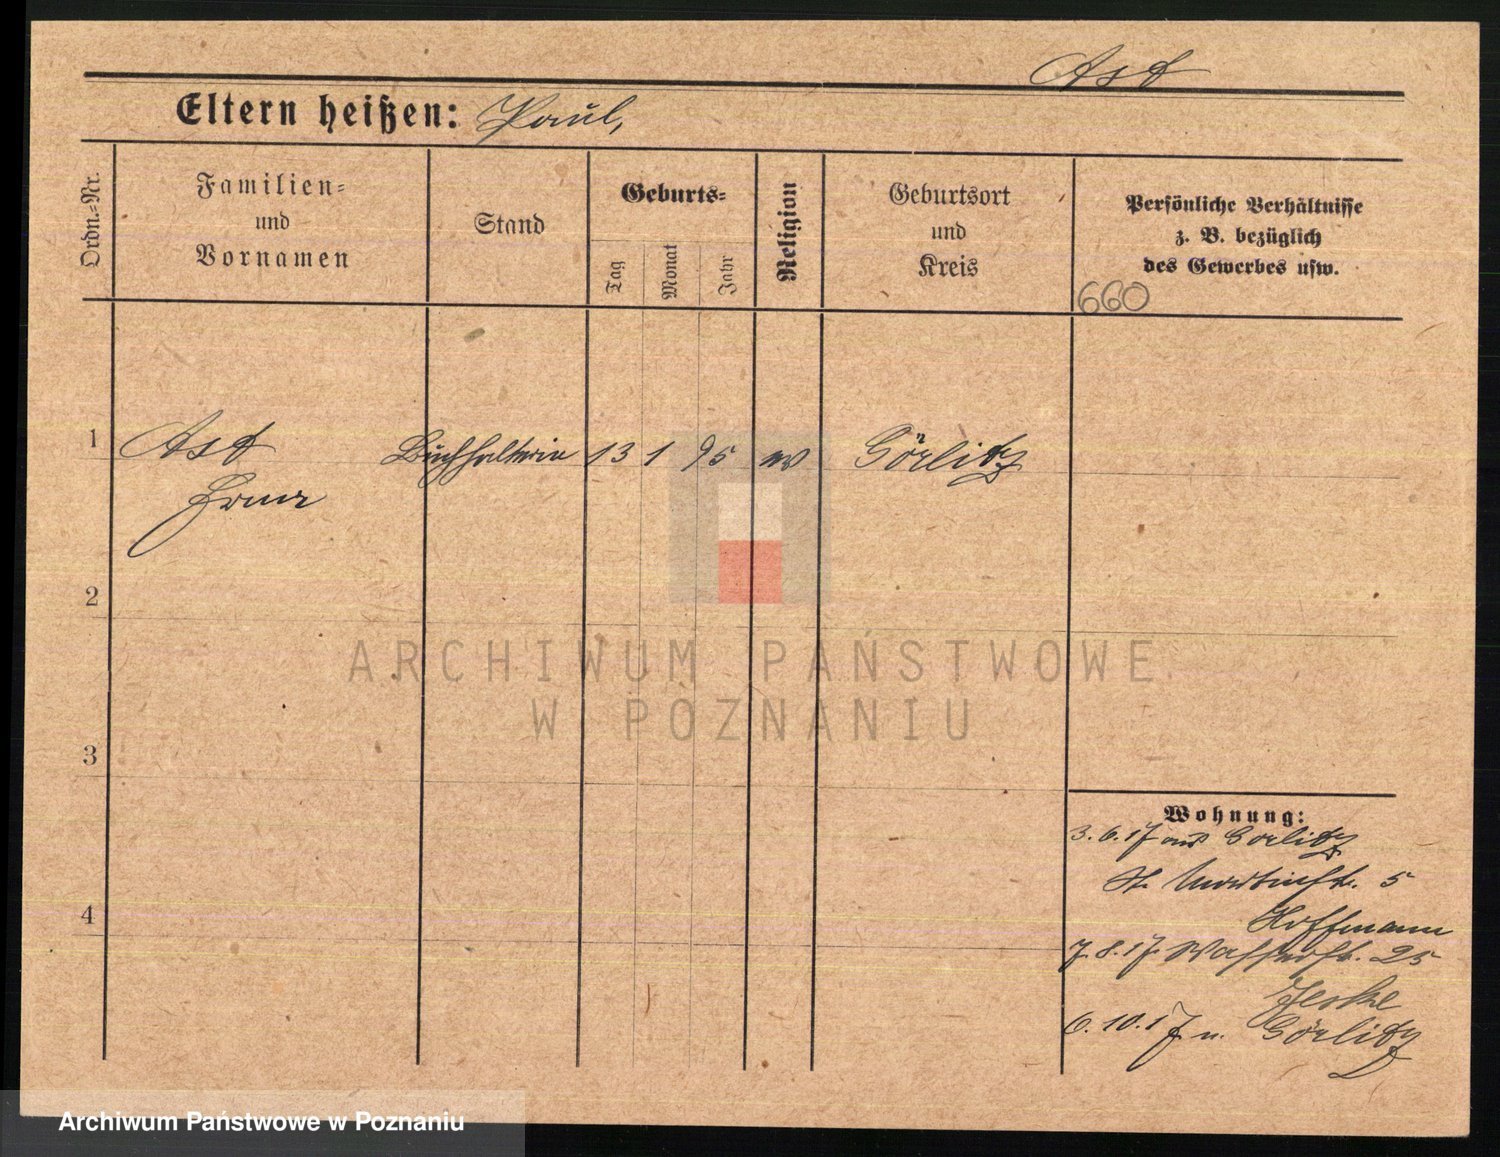 Ast
Eltern heißen: Paul,
Ordn.-Nr.
Familien-
und
Vornamen
Stand
Geburts-
Tag
Monat
Jahr
Religion
Geburtsort
und
Kreis
Persönliche Verhältnisse
z. B. bezüglich
des Gewerbes usw.
660
1 Ast Buchhalterin 13 1 95 ev Görlitz
2
3
4
Wohnung:
3.6.17 aus Görlitz
St. Martinstr. 5
Hoffmann
7.8.17. Wasserstr. 25
Jeske
6.10.17 n. Görlitz
ARCHIWUM PAŃSTWOWE
W POZNANIU
Archiwum Państwowe w Poznaniu